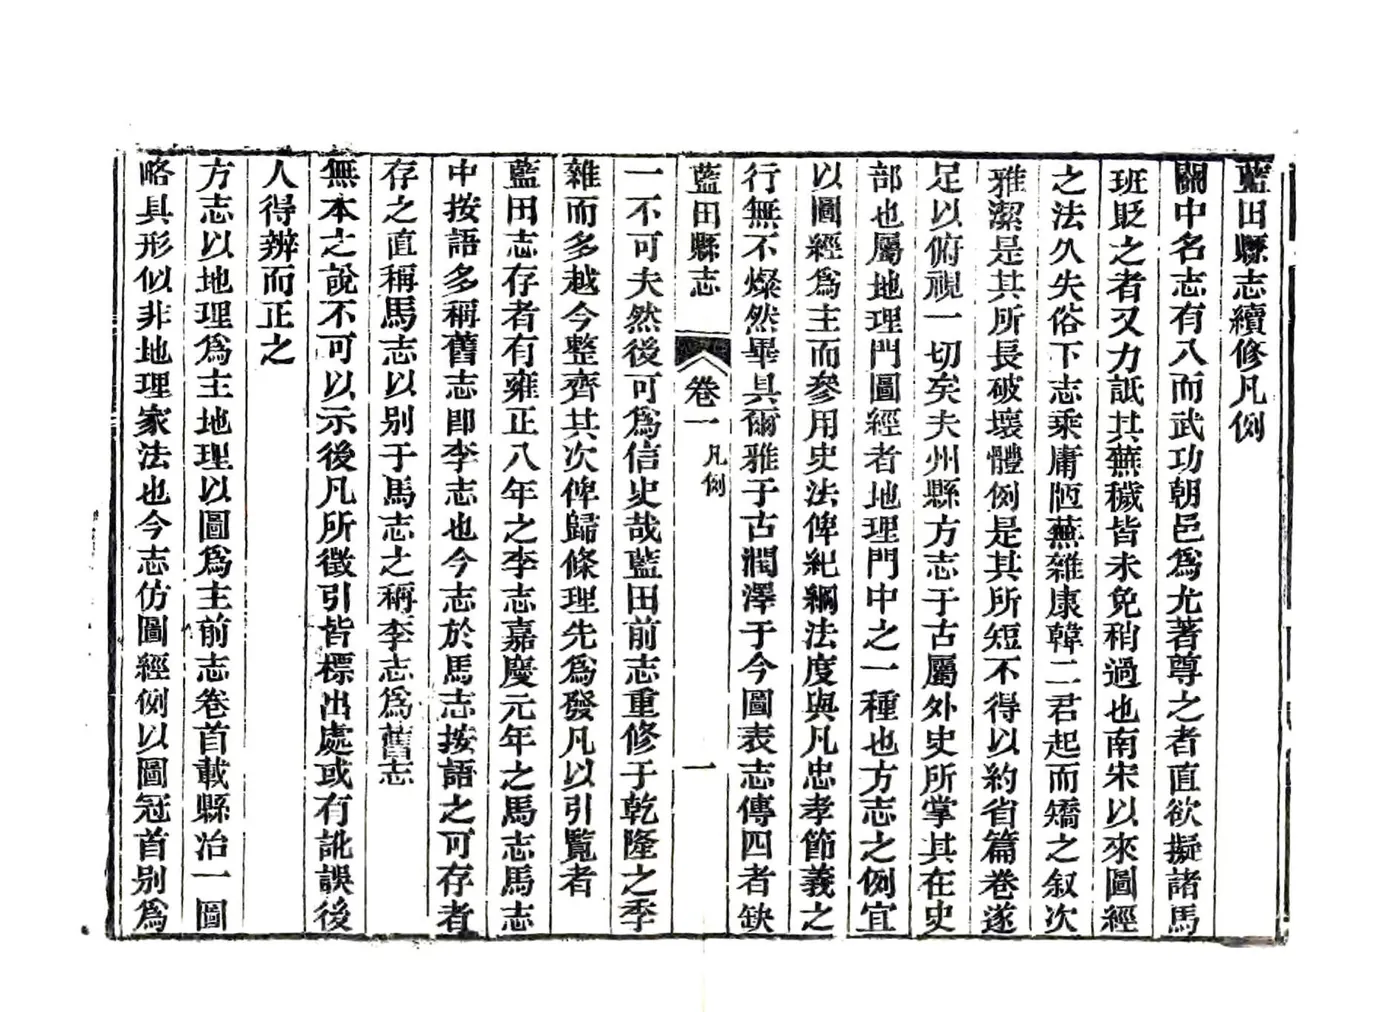 藍田縣志續修凡例
關中名志有八而武功朝邑爲尤著尊之者直欲擬諸馬
班貶之者又力詆其蕪穢皆未免稍過也南宋以來圖經
之法久失俗下志乘庸陋蕪雜康韓二君起而矯之叙次
雅潔是其所長破壞體例是其所短不得以約省篇卷遂
足以俯視一切矣夫州縣方志于古屬外史所掌其在史
部也屬地理門圖經者地理門中之一種也方志之例宜
以圖經爲主而參用史法俾紀綱法度與凡忠孝節義之
行無不燦然畢具爾雅于古潤澤于今圖表志傳四者缺
藍田縣志
卷一
凡例
一
一不可夫然後可爲信史哉藍田前志重修于乾隆之季
雜而多越今整齊其次俾歸條理先爲發凡以引覽者
藍田志存者有雍正八年之李志嘉慶元年之馬志馬志
中按語多稱舊志卽李志也今志於馬志按語之可存者
存之直稱馬志以别于馬志之稱李志爲舊志
無本之說不可以示後凡所徵引皆標出處或有訛誤後
人得辨而正之
方志以地理爲主地理以圖爲主前志卷首載縣治一圖
略具形似非地理家法也今志仿圖經例以圖冠首别爲